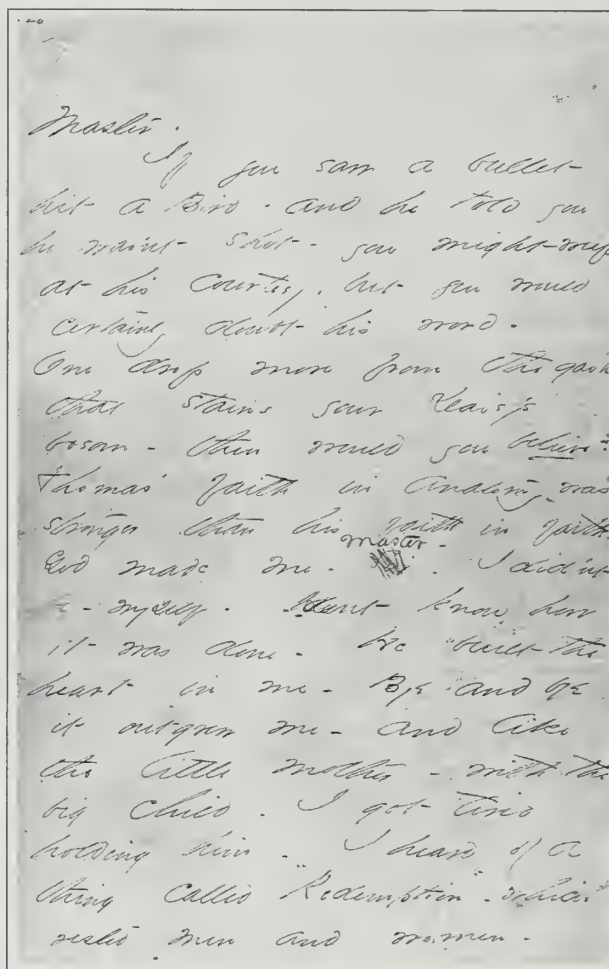 Master.
If you saw a bullet
hit a Bird - and he told you
he was'nt shot - you might weep
at his courtesy, but you would
certainly doubt his word -
One drop more from the gash
that stains your Daisy's
bosom - then would you believe?
Thomas' faith in anatomy was
stronger than his faith in faith.
God made me - Master - I did'nt
be - myself - I dont know how
it was done - He built the
heart in me - Bye and bye
it outgrew me - and like
the little mother - with the
big child - I got tired
holding him - I heard of a
thing called "Redemption" - which
rested men and women -